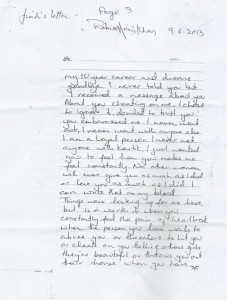 Page 3
9.6.2013
my 10 year career and dreams
goodbye. I never told you but
I received a message about you
About you cheating on me. I chose
to ignore it, decided to trust you.
you embarrassed me. I never went
out, I never went with anyone else
I am a loyal person I never met
anyone with Kartik, I just wanted
you to feel how you make me
feel constantly. No other woman
will ever give you as much as I did
or love you as much as I did. I
can write that in my blood
Things were looking up for me here,
but is it worth it when you
constantly feel the pain of heartbreak
when the person you love wants to
abuse you or threatens to hit you
or cheats on you telling other girls
they're beautiful or throws you out
their house when you have